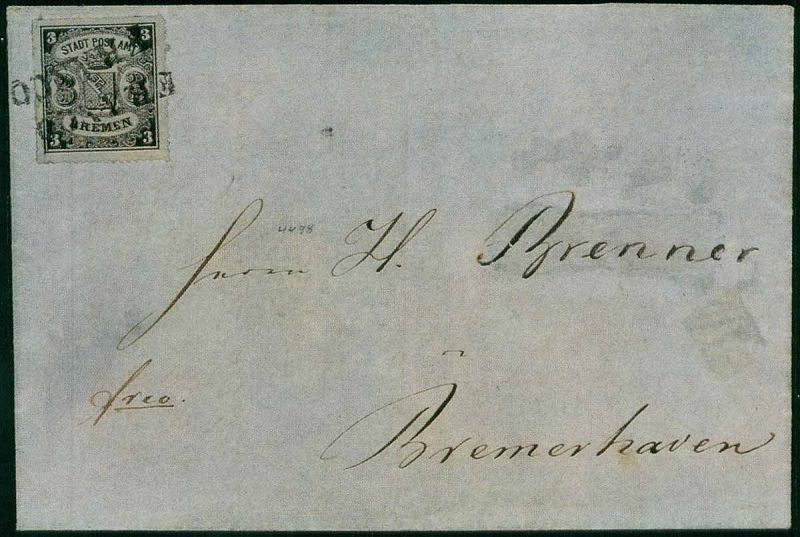 3 3
STADT POST AMT
3 3
BREMEN
3 3
4498
Herrn H. Brenner
frco.
Bremerhaven